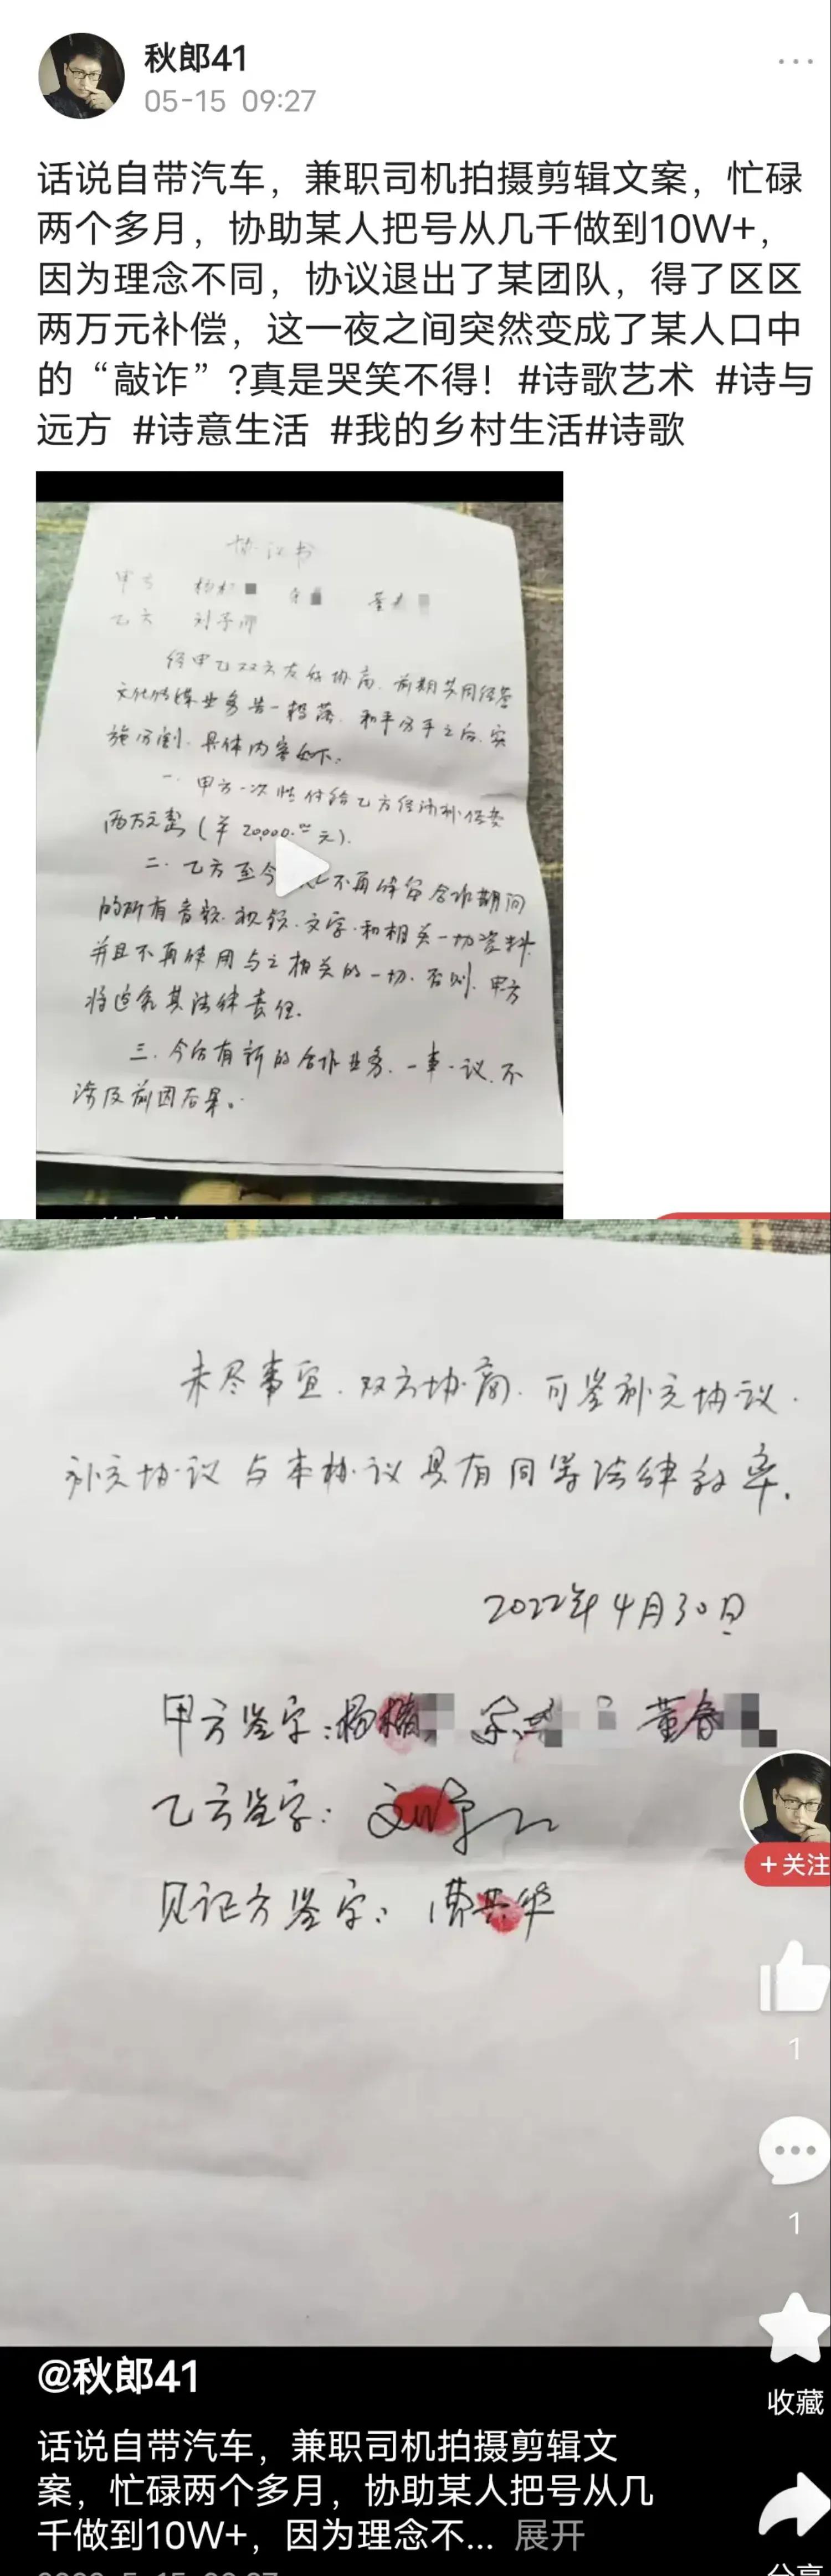 秋郎41
05-15 09:27
话说自带汽车，兼职司机拍摄剪辑文案，忙碌
两个多月，协助某人把号从几千做到10W+，
因为理念不同，协议退出了某团队，得了区区
两万元补偿，这一夜之间突然变成了某人口中
的“敲诈”?真是哭笑不得！#诗歌艺术 #诗与
远方 #诗意生活 #我的乡村生活#诗歌
协议书
甲方 杨
乙方 刘
经甲乙双方友好协商，前期共同经营
文化传媒业务告一段落，和平分手之后，实
施分割，具体内容如下：
一、甲方一次性付给乙方经济补偿费
两万元整（¥20000.00元）.
二、乙方至今 不再保留合作期间
的所有音频、视频、文字、和相关一切资料，
并且不再使用与之相关的一切，否则，甲方
将追究其法律责任.
三、今后有新的合作业务，一事一议，不
涉及前因后果。
未尽事宜，双方协商，可签补充协议.
补充协议与本协议具有同等法律效率.
2022年4月30日
甲方鉴字：杨 董春
乙方鉴字：
见证方鉴字：曹共华
+关注
1
1
收藏
@秋郎41
话说自带汽车，兼职司机拍摄剪辑文
案，忙碌两个多月，协助某人把号从几
千做到10W+，因为理念不... 展开